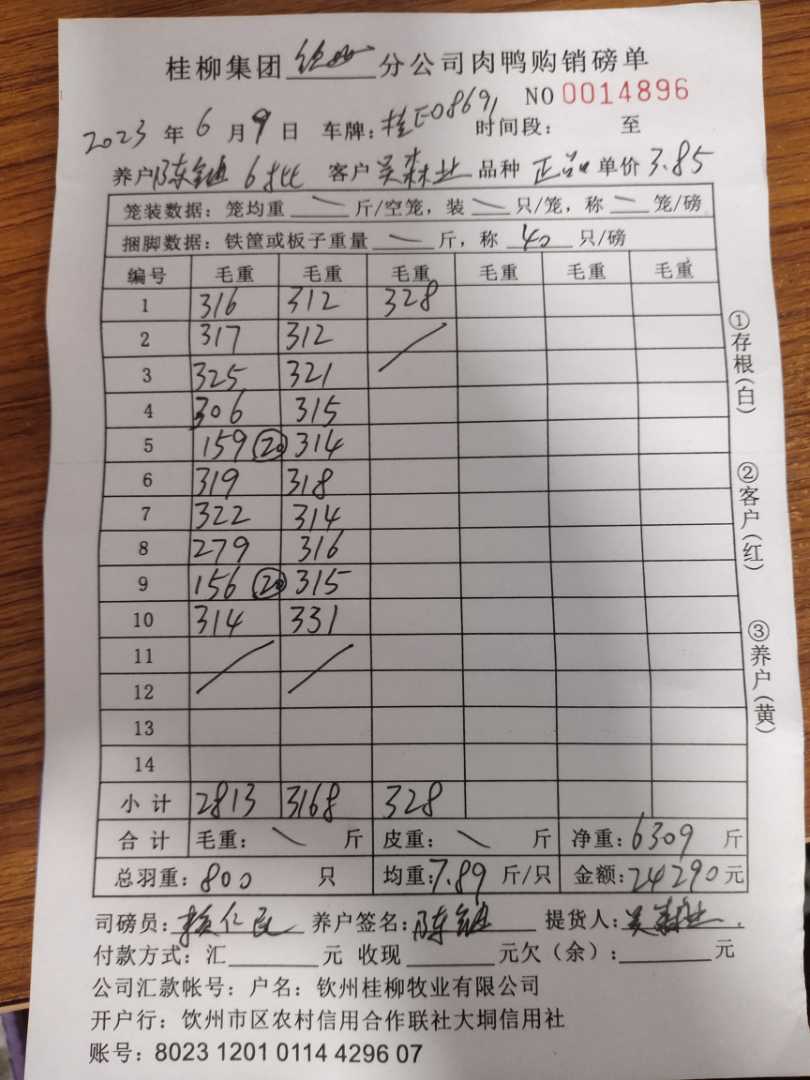 桂柳集团钦州分公司肉鸭购销磅单
NO 0014896
2023年6月9日 车牌:桂E08691 时间段: 至
养户陈 6批 客户吴森业 品种 正品 单价3.85
笼装数据:笼均重 \ 斤/空笼,装 \ 只/笼,称 \ 笼/磅
捆脚数据:铁筐或板子重量 \ 斤,称 40 只/磅
编号 毛重 毛重 毛重 毛重 毛重 毛重
1 316 312 328
2 317 312
3 325 321
4 306 315
5 159 ⑳ 314
6 319 318
7 322 314
8 279 316
9 156 ⑳ 315
10 314 331
11
12
13
14
小计 2813 3168 328
合计 毛重: \ 斤 皮重: \ 斤 净重:6309 斤
总羽重:800 只 均重:7.89 斤/只 金额:24290元
司磅员: 养户签名:陈 提货人:吴森业
付款方式:汇 元 收现 元欠(余): 元
公司汇款帐号:户名:钦州桂柳牧业有限公司
开户行:饮州市区农村信用合作联社大垌信用社
账号:8023 1201 0114 4296 07
①存根(白)
②客户(红)
③养户(黄)